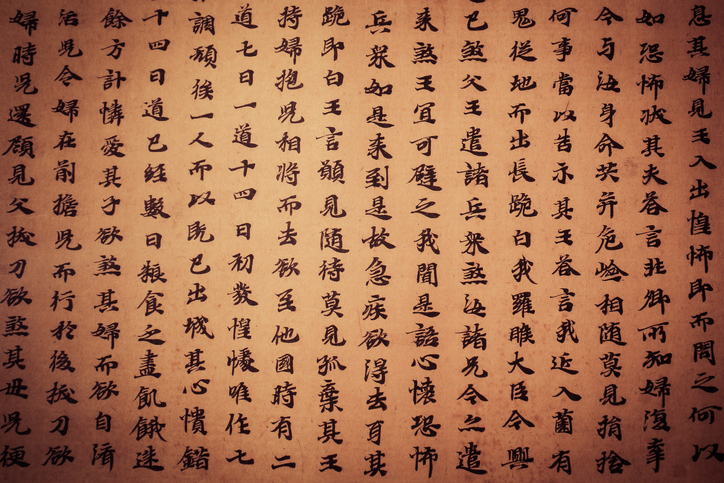 息其婦見王入出惶怖即而問之何以
如恐怖狀其夫荅言非卿所知婦復牽
今与汝身命共并危嶮相随莫見捐捨
何事當以告示其王荅言我近入薗有
鬼從地而出長跪白我羅睺大臣今興
已煞父王遣諸兵衆煞汝諸兄今亡遣
来煞王宜可避之我聞是語心懷恐怖
兵衆如是来到是故急疾欲得去耳其
跪即白王言願見随侍莫見孤棄其王
持婦抱兒相將而去欲至他國時有二
道七日一道十四日初發惶懅唯作七
調頓後一人而以既已出城其心憒錯
十四日道已經數日粮食乏盡飢餓迷
餘方計憐愛其子欲煞其婦而欲自濟
治兒令婦在前擔兒而行於後拔刀欲
婦時兒還顧見父拔刀欲煞其母兒便